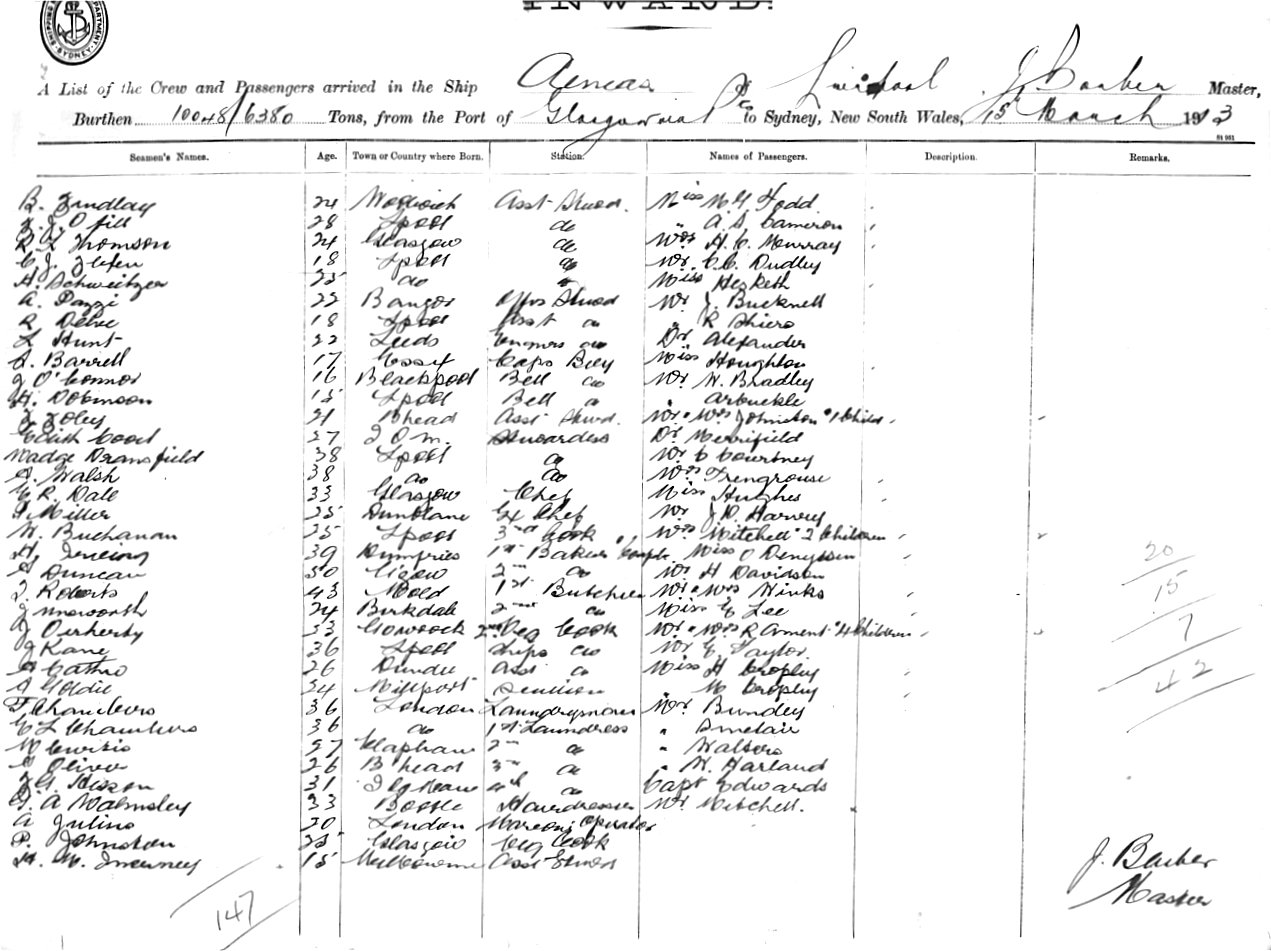 INWARD.
SHIPPING DEPARTMENT. SYDNEY
A List of the Crew and Passengers arrived in the Ship Aeneas of Liverpool J. Barber Master,
Burthen 10048/6380 Tons, from the Port of Glasgow via to Sydney, New South Wales, 15 March 1913
Seamen's Names. Age. Town or Country where Born. Station. Names of Passengers. Description. Remarks.
B. 24 Woolwich Asst Stwd. Miss
28 Lpool do " A. S. Cameron
Thomson 24 Glasgow do Mrs H. C. Murray
18 Lpool do Mr C. C. Dudley
H. Schweitzer 25 do Miss Hesketh
A. 22 Bangor Offrs Stwd Mr J. Bucknell
R 18 Lpool Asst do " R Shiers
L Hunt 22 Leeds do Dr Alexander
A. Barrell 17 Essex Capts Boy Miss Houghton
J O'Connor 16 Blackpool Bell do Mr W. Bradley
H. Dobinson 15 Lpool Bell do " Arbuckle
Foley 21 Bhead Asst Stwd. Mr & Mrs Johnston & 1 Child
27 I. O. M. Stewardess Dr Merrifield
Madge Dransfield 38 Lpool do Mr C Courtney
A. Walsh 38 do do Mrs Trengrouse
E R. Dale 33 Glasgow Chef Miss Hughes
Miller 25 Dunblane Ex Chef Mr J. D. Harvey
W. Buchanan 25 Lpool 3rd Cook Mrs Mitchell & 2 Children
H. 39 Dumfries 1st Baker Miss O Denyssen
Duncan 30 2nd do Mr H Davidson
T. Roberts 43 Mold 1st Butcher Mr & Mrs Hinks
J 24 Birkdale 2nd do Miss E Lee
J 33 Gourock 2nd Veg Cook Mr & Mrs R Arment & 4 Children
J Kane 36 Lpool Ships do Mr E Taylor.
Cathro 26 Dundee Asst do Miss H Cropley
Goldie 34 Millport Scullion " M Cropley
F Chambers 36 London Laundryman Mr Bundey
E L Chambers 36 do 1st Laundress " Sinclair
27 Clapham 2nd do " Walters
Oliver 26 B head 3rd do " W. Harland
31 4th do Capt Edwards
A Walmsley 33 Bootle Hairdresser Mr Mitchell.
A Julius 20 London Marconi Operator
P. Johnston 25 Glasgow Veg Cook
15 Melbourne Asst
20
15
7
42
147
J. Barber
Master